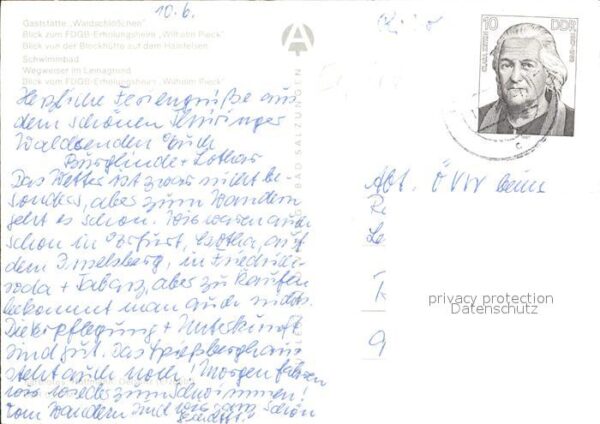 10.6.
Gaststätte „Waldschlößchen"
Blick zum FDGB-Erholungsheim „Wilhelm Pieck"
Blick von der Blockhütte auf dem Hainfelsen
Schwimmbad
Wegweiser im Leinagrund
Blick vom FDGB-Erholungsheim „Wilhelm Pieck"
BAD SALZUNGEN
10 DDR
CLARA ZETKIN
Herzliche Feriengrüße aus
dem schönen Thüringer
Wald senden Euch
Burglinde + Lothar
Das Wetter ist zwar nicht be-
sonders, aber zum Wandern
geht es schon. Wir waren auch
schon in Erfurt, Gotha, auf
dem Inselsberg, in Friedrich-
roda + Tabarz, aber zu kaufen
bekommt man auch nichts.
Die Verpflegung + Unterkunft
sind gut. Das Spießberghaus
steht auch noch! Morgen fahren
wir wieder zum Schwimmen!
Vom Wandern sind wir ganz schön
geschafft!
Abt. ÖVW beim
R
Le
K
9
privacy protection
Datenschutz